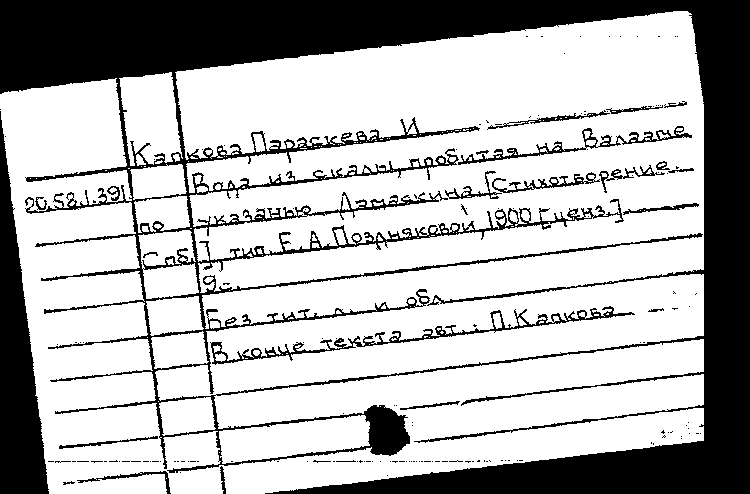 Капкова, Параскева И
20.52.1.391
Вода из скалы, пробитая на Валааме
по указанью Дамаскина. [Стихотворение.
Спб.], тип. Е. А. Поздняковой, 1900 [ценз.].
9с.
Без тит. л. и обл.
В конце текста авт.: П. Капкова